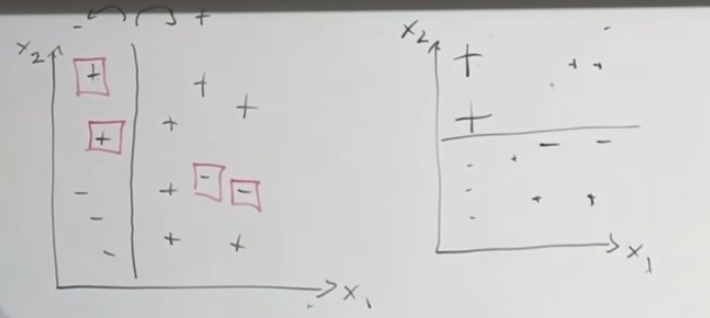 - +
x₂
+ +
+ +
+
- + - -
-
- + +
x₁
x₂
+ + +
+
- -
- +
-
- + +
x₁